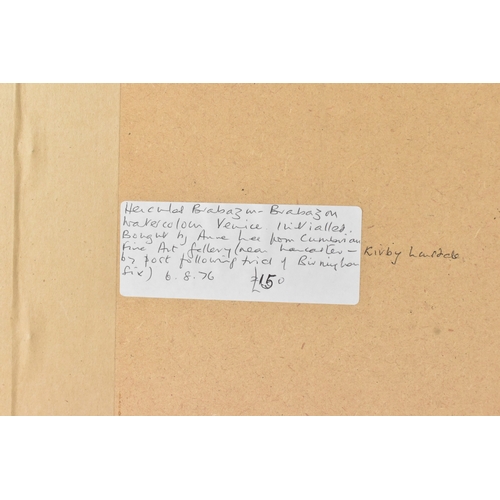 Hercules Brabazon-Brabazon
watercolour Venice initialled.
Bought by Anne Lee from Cumbrian
Fine Art Gallery (near Lancaster - Kirby Lonsdale.
by post following trial of Birmingham
six) 6.8.76 £150